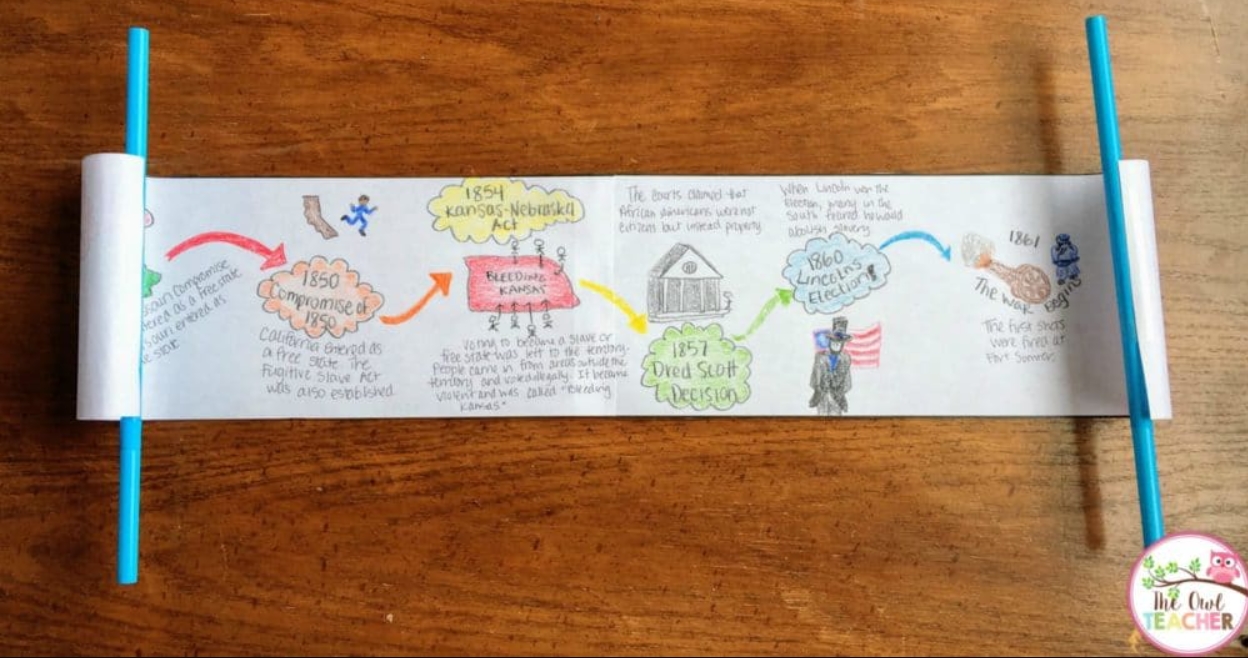 souri compromise
tered as a free state
souri entered as
e state
1850
Compromise of
1850
California entered as
a free state. The
Fugitive Slave Act
was also established
1854
Kansas-Nebraska
Act
BLEEDING
KANSAS
Voting to become a slave or
free state was left to the territory.
People came in from areas outside the
territory and voted illegally. It became
violent and was called "Bleeding
Kansas"
The courts claimed that
African Americans were not
citizens but instead property
1857
Dred Scott
Decision
When Lincoln won the
Election, many in the
South feared he would
abolish slavery
1860
Lincoln's
Election
1861
The War Begins
The first shots
were fired at
Fort Sumter
The Owl
TEACHER